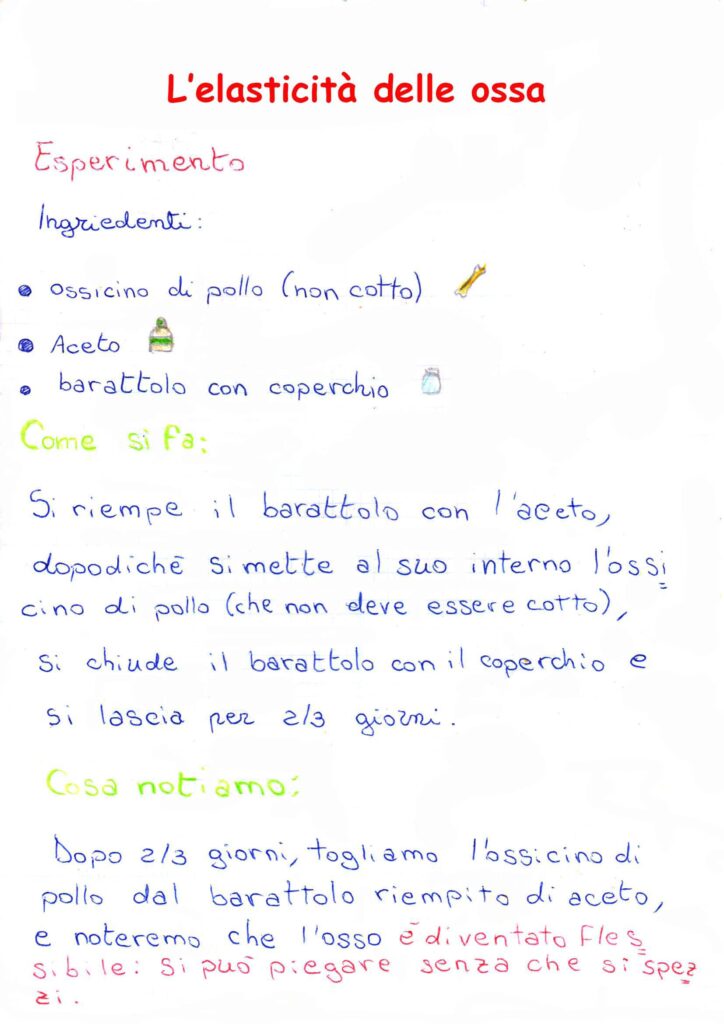 L'elasticità delle ossa
Esperimento
Ingriedenti:
ossicino di pollo (non cotto)
Aceto
barattolo con coperchio
Come si fa:
Si riempe il barattolo con l'aceto,
dopodichè si mette al suo interno l'ossi
cino di pollo (che non deve essere cotto),
si chiude il barattolo con il coperchio e
si lascia per 2/3 giorni.
Cosa notiamo:
Dopo 2/3 giorni, togliamo l'ossicino di
pollo dal barattolo riempito di aceto,
e noteremo che l'osso è diventato fles
sibile: si può piegare senza che si spez
zi.